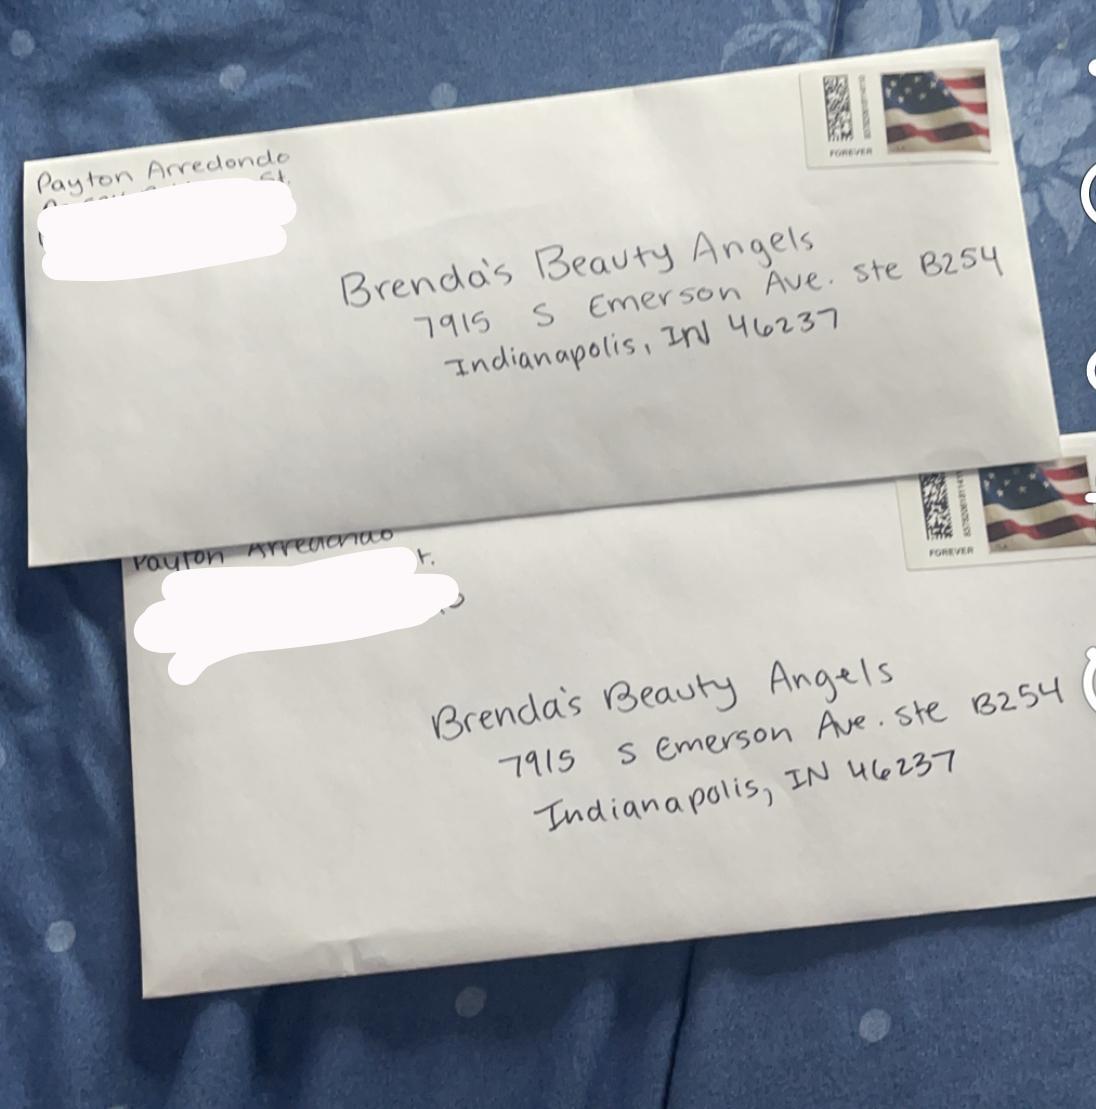 Payton Arredondo
St.
FOREVER
Brenda's Beauty Angels
7915 S Emerson Ave. Ste B254
Indianapolis, IN 46237
Payton Arredondo
FOREVER
Brenda's Beauty Angels
7915 S Emerson Ave. Ste B254
Indianapolis, IN 46237